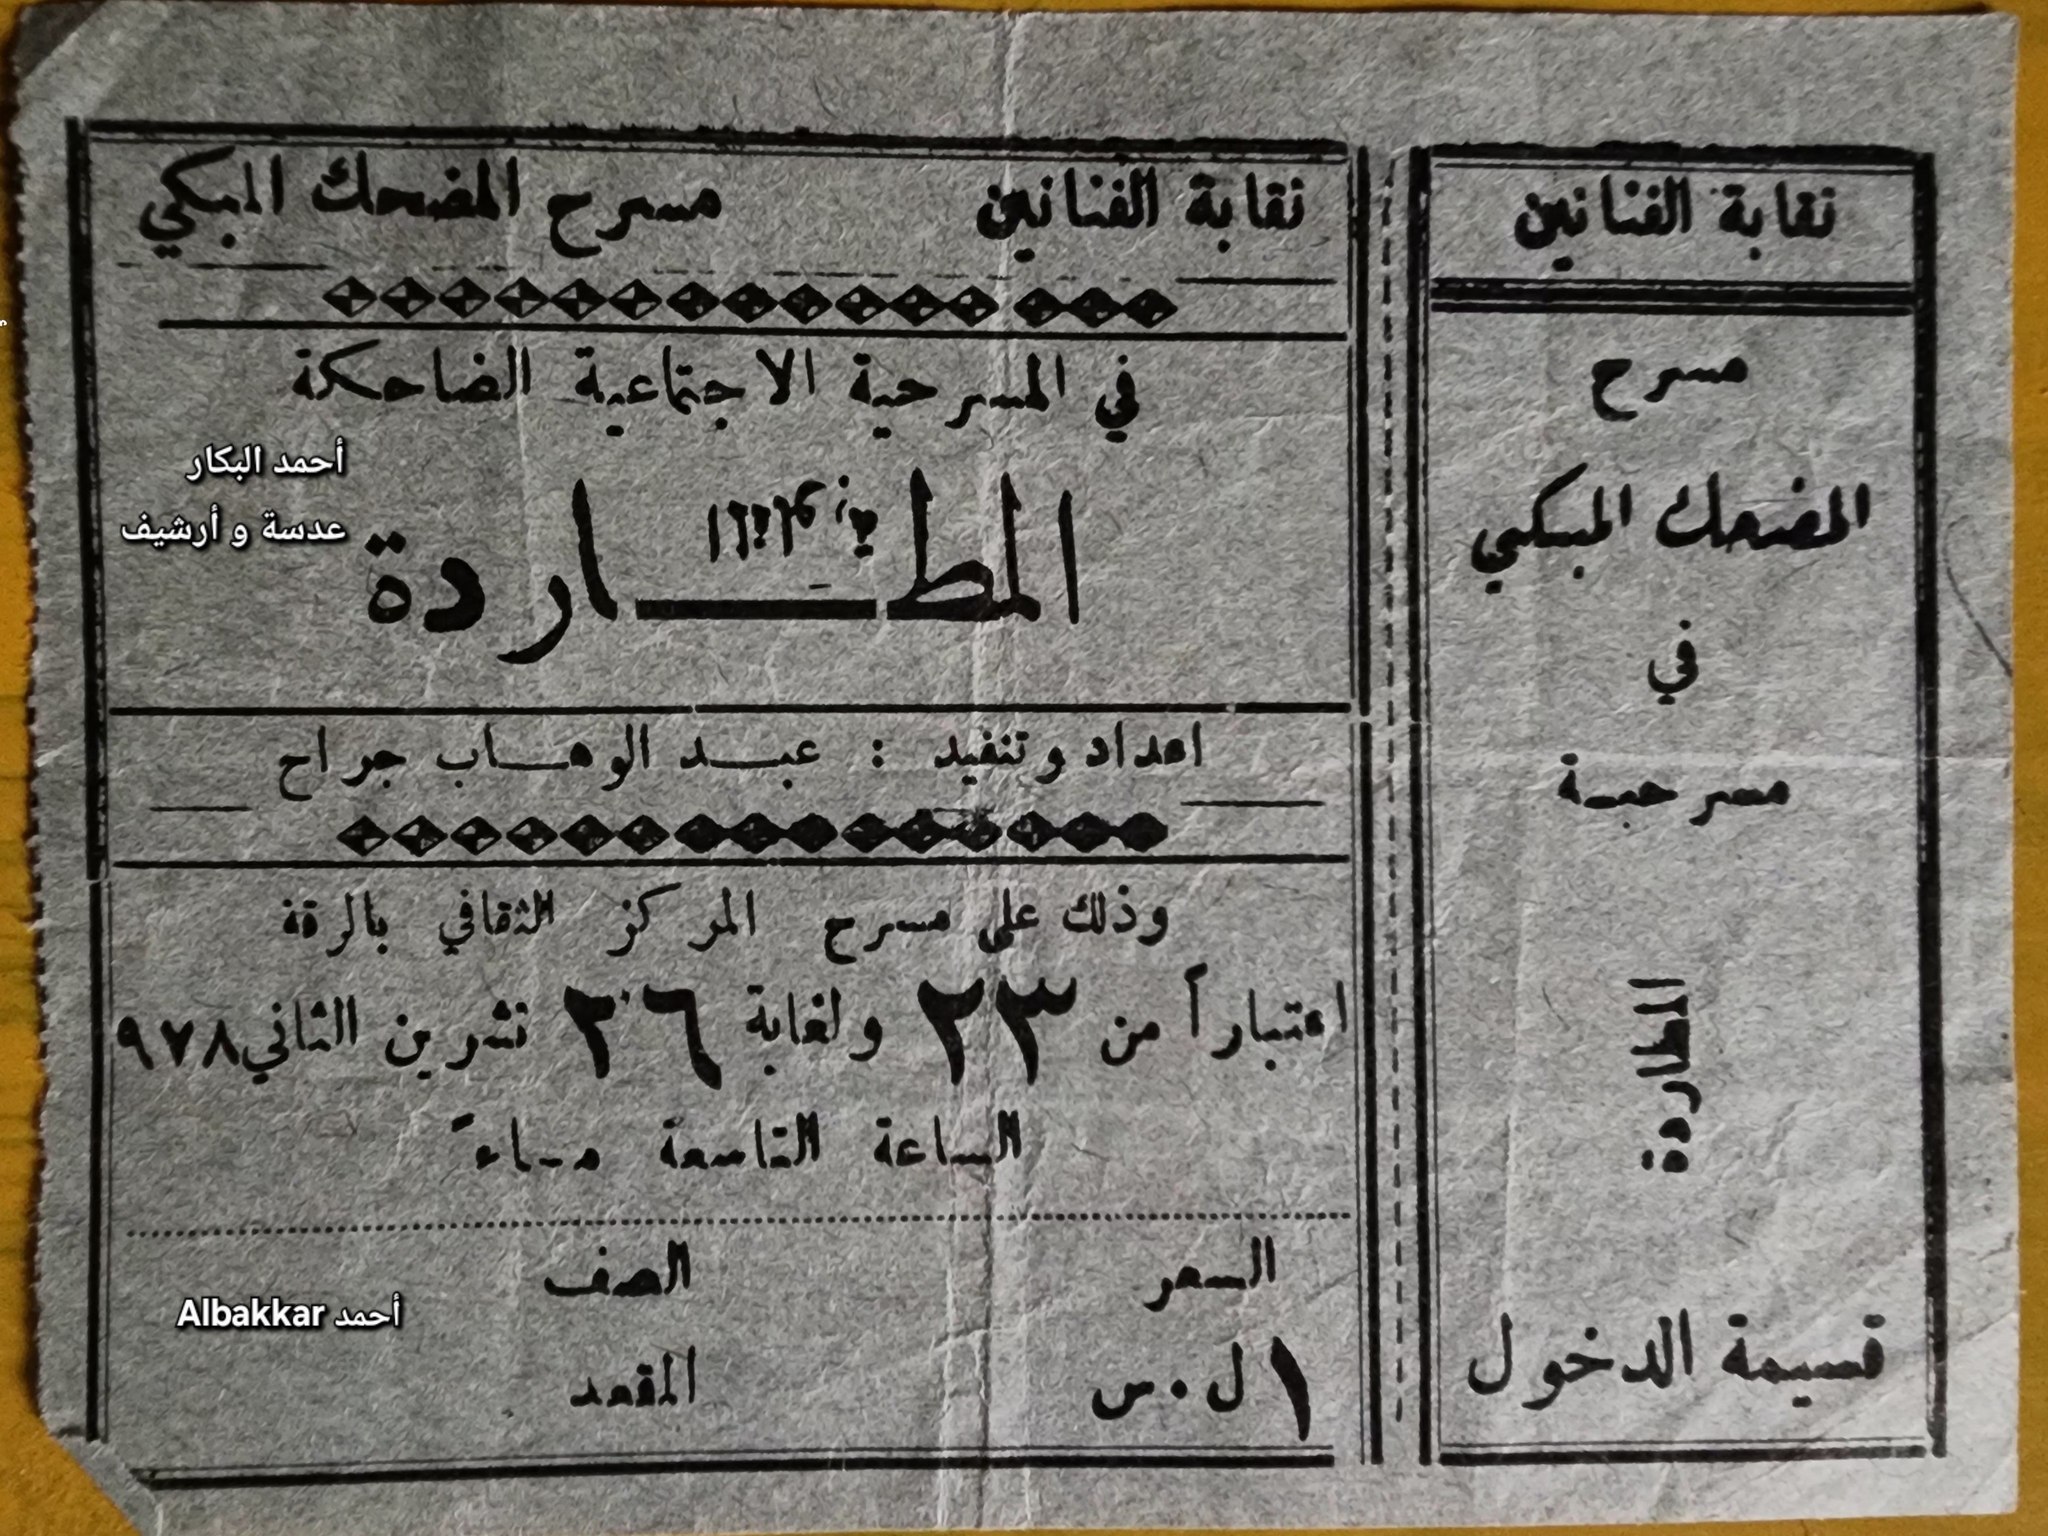 نقابة الفنانين
مسرح
المضحك المبكي
في
مسرحية
المطاردة
قسيمة الدخول
نقابة الفنانين مسرح المضحك المبكي
في المسرحية الاجتماعية الضاحكة
المطـــاردة
أحمد البكار
عدسة و أرشيف
اعداد وتنفيد : عبـد الوهـاب جراح
وذلك على مسرح المركز الثقافي بالرقة
اعتباراً من ٢٣ ولغاية ٢٦ تشرين الثاني ٩٧٨
الساعة التاسعة مساءً
السعر الصف
١ ل.س المقعد
أحمد Albakkar